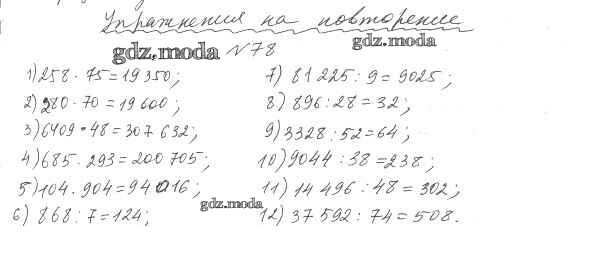 Упражнения на повторение
gdz.moda №78 gdz.moda
1) 258 · 75 = 19 350;
2) 280 · 70 = 19 600;
3) 6409 · 48 = 307 632;
4) 685 · 293 = 200 705;
5) 104 · 904 = 94 016;
6) 868 : 7 = 124;
7) 81 225 : 9 = 9025;
8) 896 : 28 = 32;
9) 3328 : 52 = 64;
10) 9044 : 38 = 238;
11) 14 496 : 48 = 302;
12) 37 592 : 74 = 508.
gdz.moda